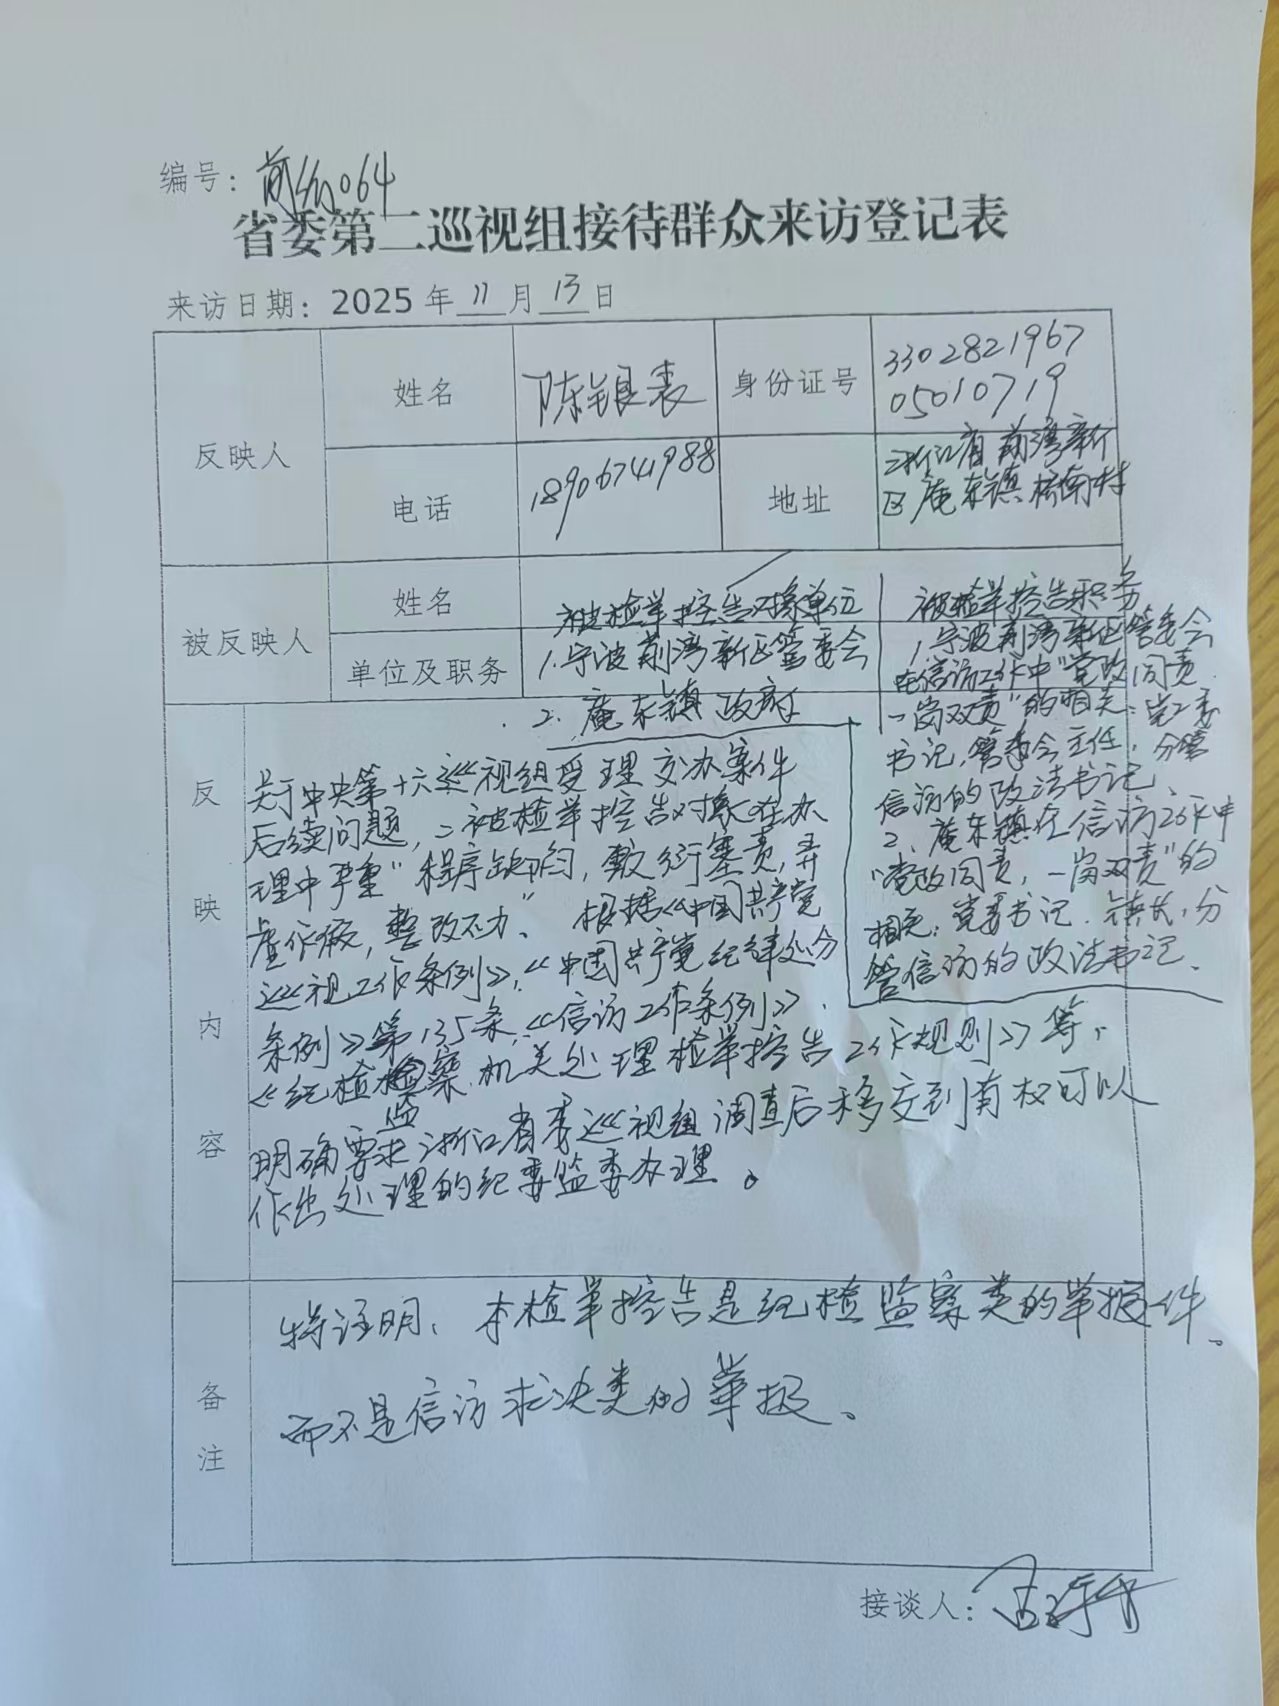 编号：前纺064
省委第二巡视组接待群众来访登记表
来访日期：2025年11月13日
反映人
姓名
陈银表
身份证号
3302821967
05010719
电话
18906741988
地址
浙江省前湾新
区庵东镇桥南村
被反映人
姓名
单位及职务
被检举控告对像单位
1.宁波前湾新区管委会
2.庵东镇政府
被检举控告职务
1.宁波前湾新区管委会
在信访工作中"党政同责
一岗双责"的相关：党工委
书记，管委会主任，分管
信访的政法书记、
2、庵东镇在信访工作中
"党政同责，一岗双责"的
相关：党委书记、镇长，分
管信访的政法书记、
反映内容
关于中央第十六巡视组受理交办案件
后续问题，二被检举控告对象在办
理中严重"程序缺陷，敷衍塞责，弄
虚作假，整改不力"。根据《中国共产党
巡视工作条例》，《中国共产党纪律处分
条例》第135条，《信访工作条例》、
《纪检监察机关处理检举控告工作规则》等，
明确要求浙江省委巡视组调查后移交到有权可以
作出处理的纪委监委办理。
备注
特证明、本检举控告是纪检监察类的举报件、
而不是信访求决类的举报、
接谈人：